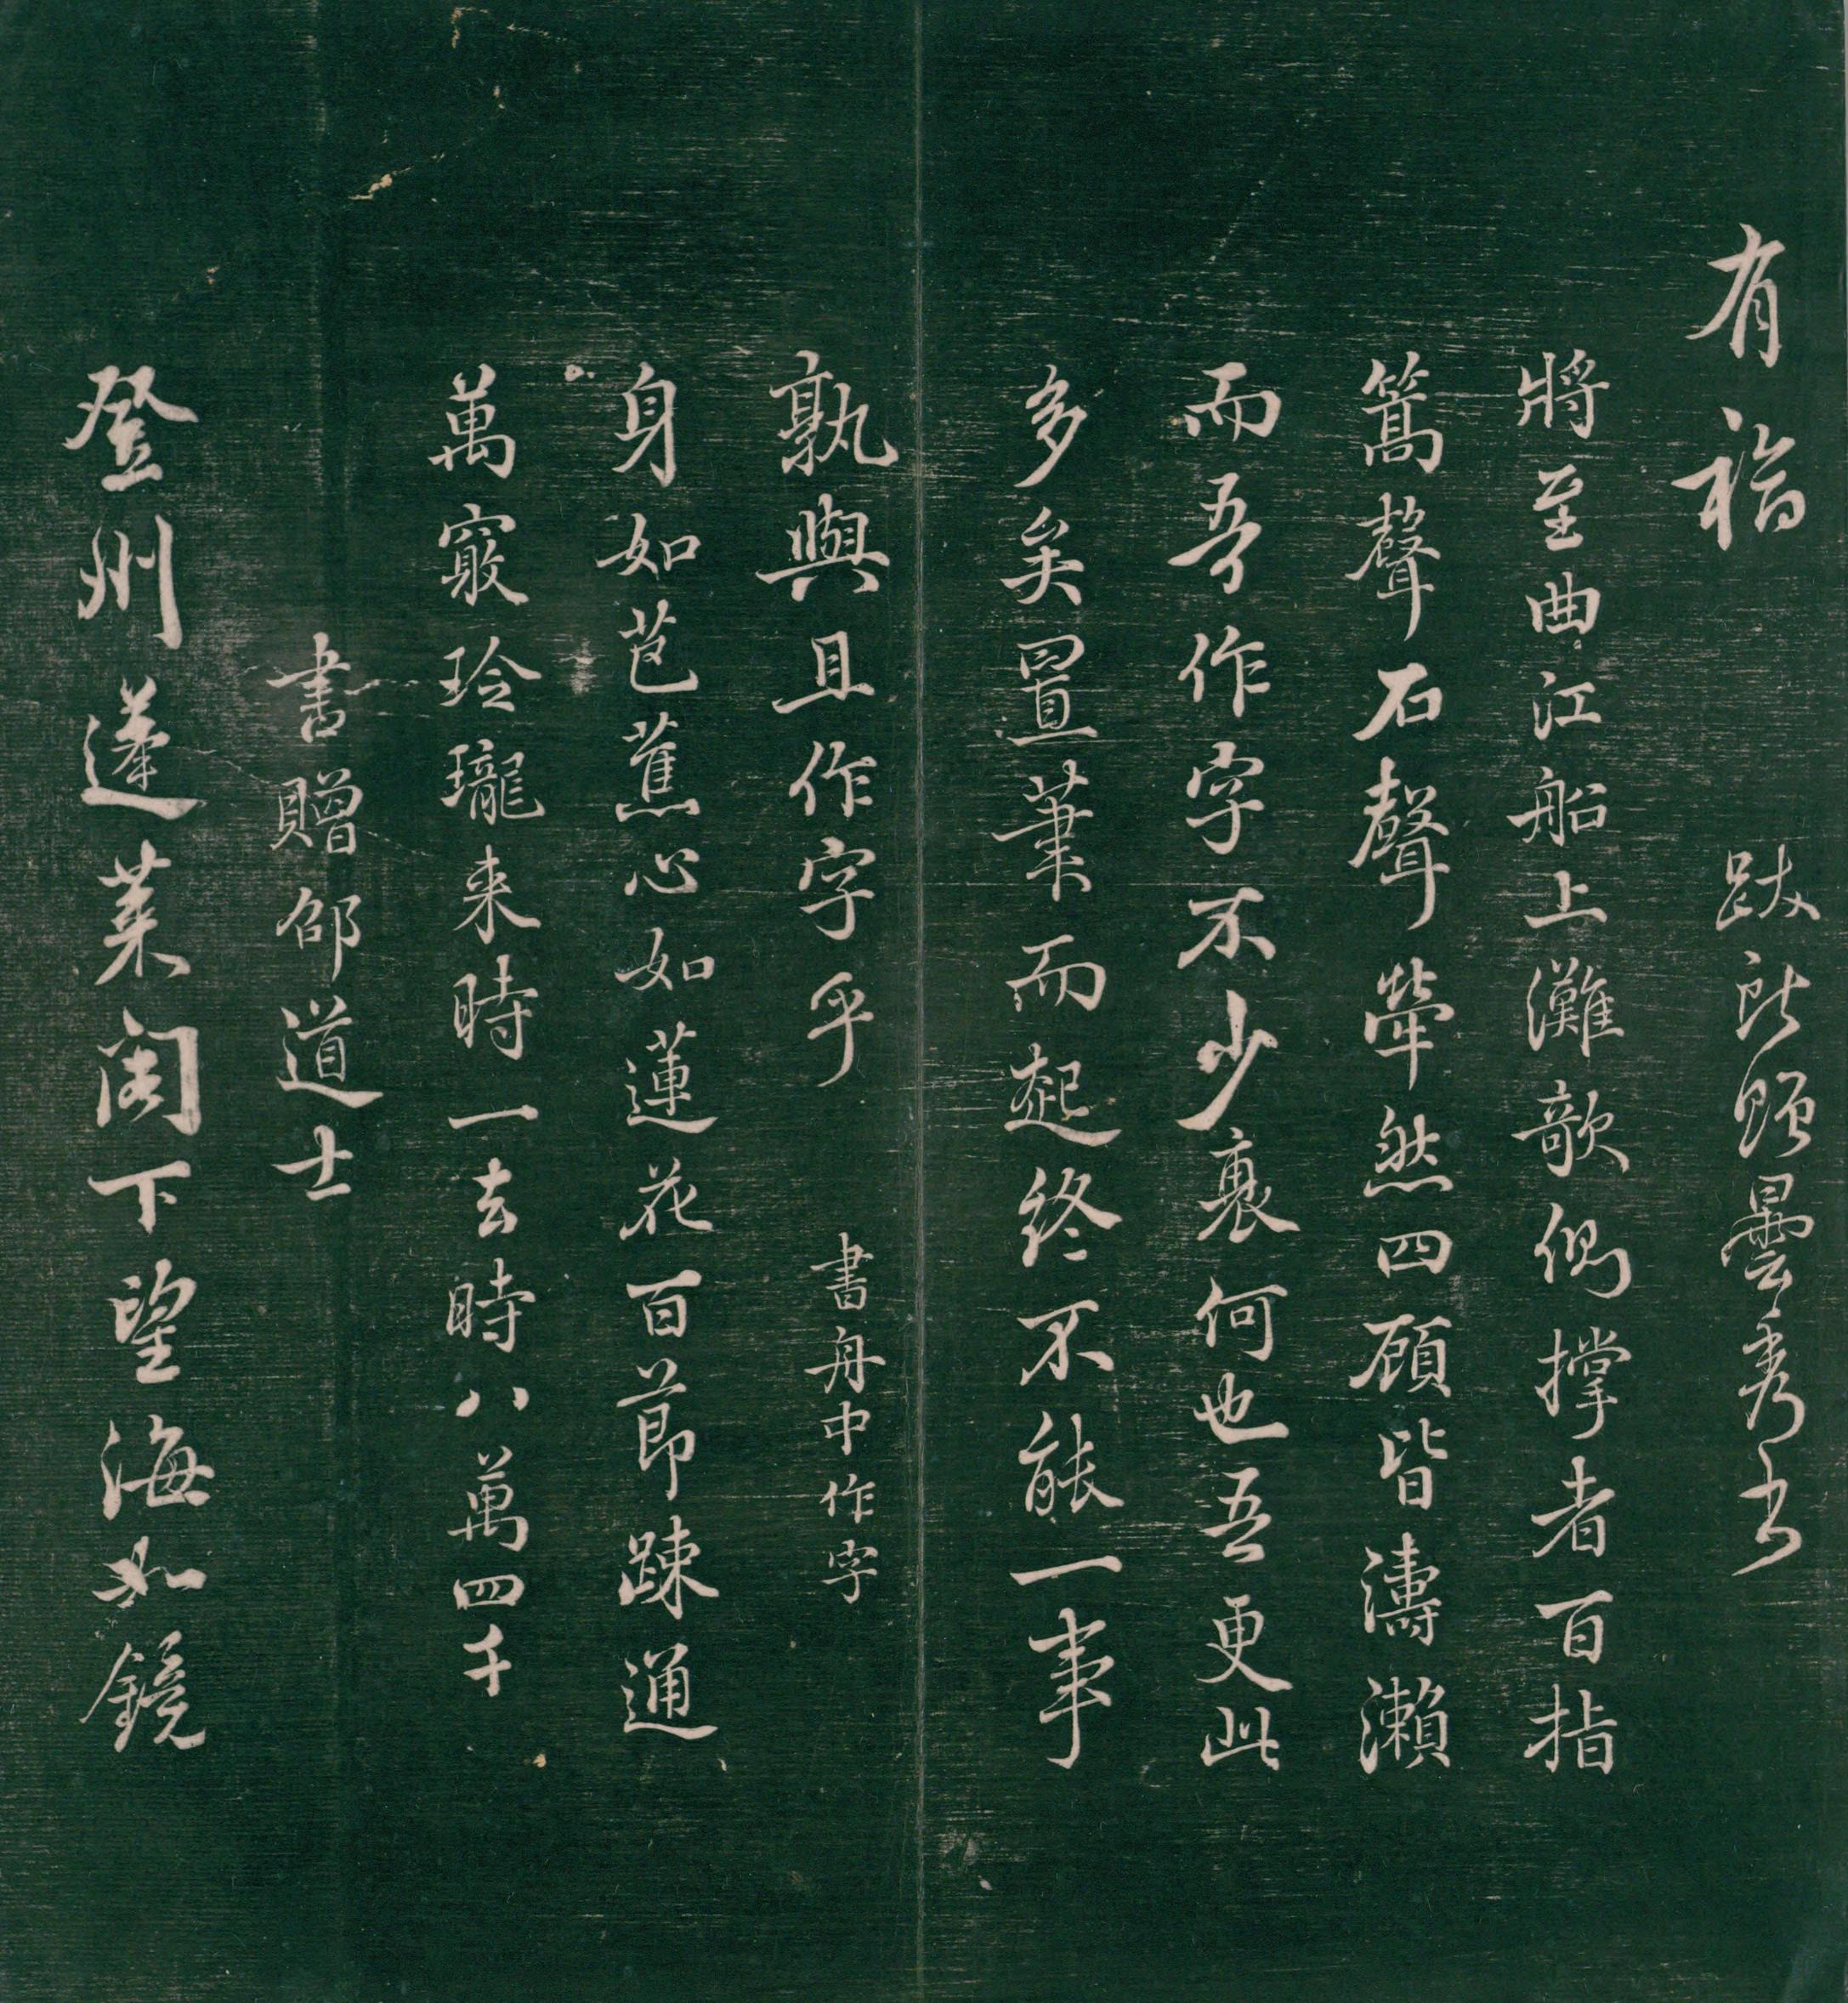 有福　跋所贈曇秀書
將至曲江船上灘欹側撐者百指
篙聲石聲犖然四顧皆濤瀨
而吾作字不少衰何也吾更此
多矣置筆而起終不能一事
孰與且作字乎　書舟中作字
身如芭蕉心如蓮花百節踈通
萬竅玲瓏来時一去時八萬四千
書贈邵道士
登州蓬萊閣下望海如鏡